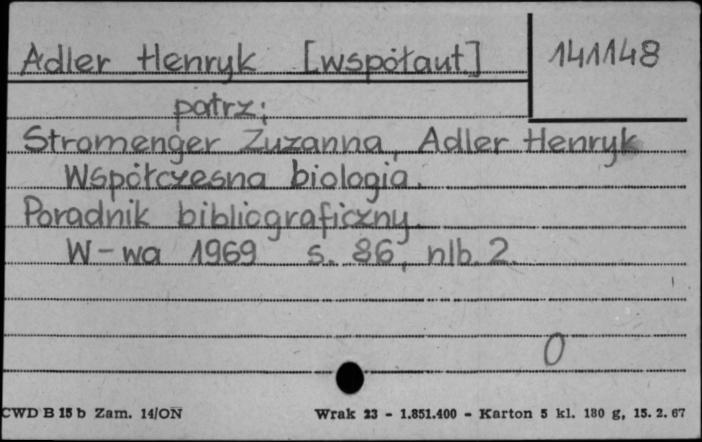 Adler Henryk [współaut.] 141148
patrz:
Stromenger Zuzanna, Adler Henryk
Współczesna biologia.
Poradnik bibliograficzny.
W-wa 1969 s. 86, nlb. 2.
0
CWD B 15 b Zam. 14/ON Wrak 23 - 1.851.400 - Karton 5 kl. 180 g, 15. 2. 67